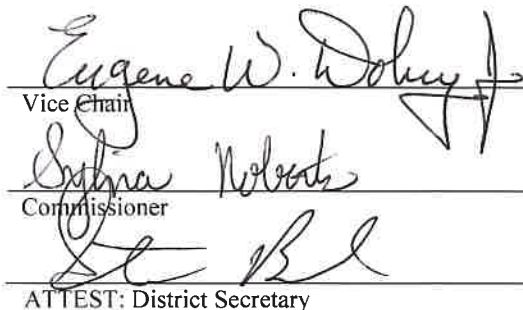 Eugene W.
Vice Chair
Sylvia Roberts
Commissioner
ATTEST: District Secretary